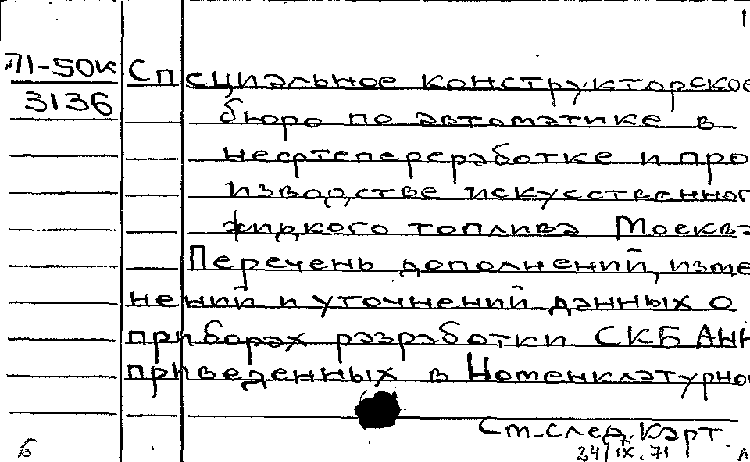 71-50К Специальное конструкторское
3136 бюро по автоматике в
нефтепереработке и про
изводстве искусственног
жидкого топлива Москва
Перечень дополнений, изме
нений и уточнений данных о
приборах разработки СКБ АНН
приведенных в Номенклатурно
См. след. карт.
б 24/IX.71